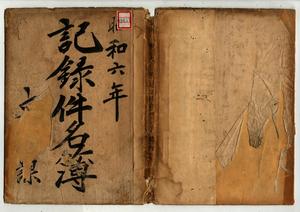 昭和六年
記録件名簿
課